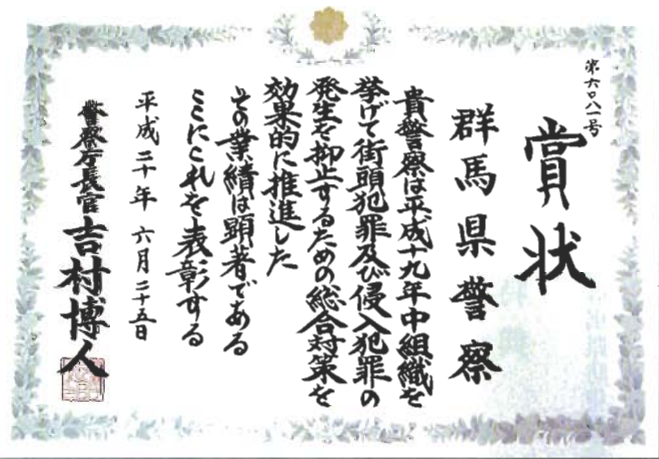 第六〇八一号
賞状
群馬県警察
貴警察は平成十九年中組織を
挙げて街頭犯罪及び侵入犯罪の
発生を抑止するための総合対策を
効果的に推進した
その業績は顕著である
ここにこれを表彰する
平成二十年 六月二十五日
警察庁長官 吉村博人